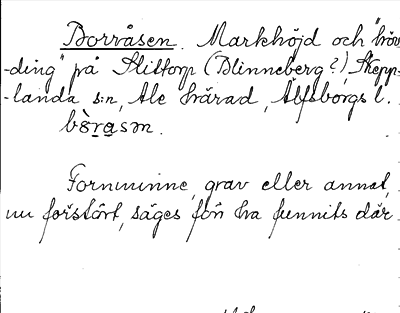 Borråsen. Markhöjd och "höv-
-ding" på Slittorp (Blinneberg?) Skepp-
-landa s:n, Ale härad, Älfsborgs l.
bòrasən.
Fornminne, grav eller annat,
nu förstört, säges förr ha funnits där